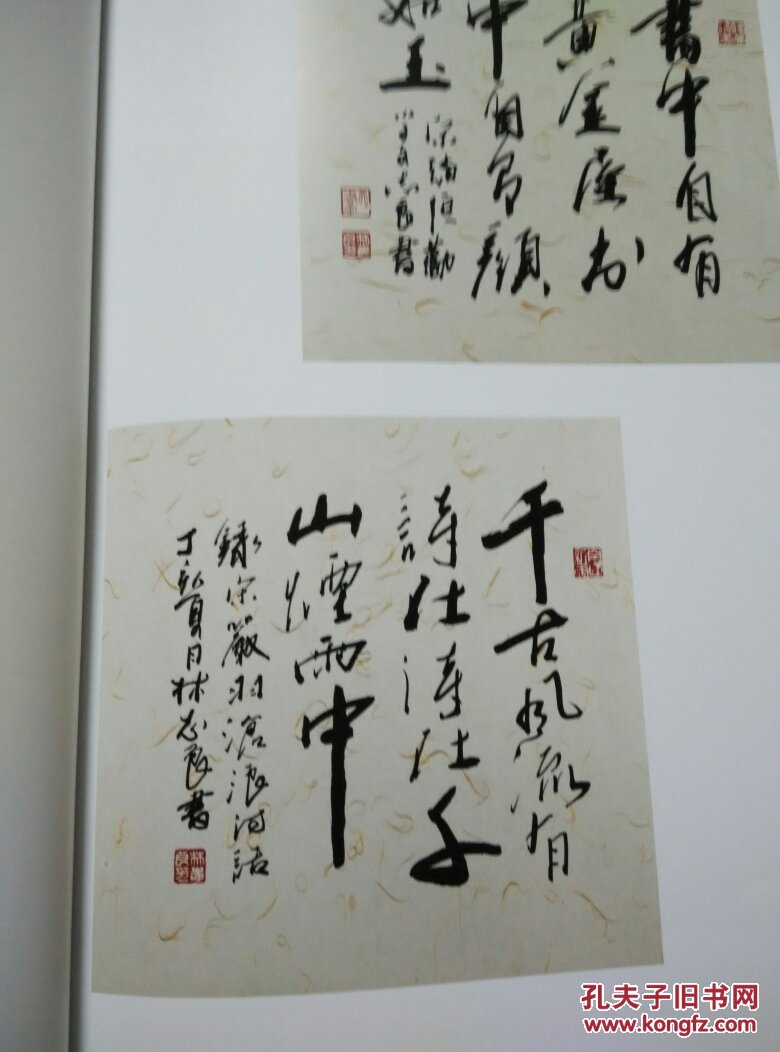 書中自有
黄金屋书
中自有顔
如玉
宋趙恒勸
學文志良書
千古風流有
詩在詩在千
山煙雨中
錄宋嚴羽滄浪詩話
丁酉夏月林志良書
孔夫子旧书网
www.kongfz.com